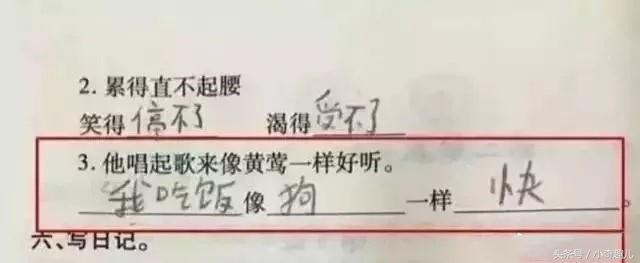 2. 累得直不起腰
笑得停不了 渴得受不了
3. 他唱起歌来像黄莺一样好听。
我吃饭像狗一样快。
六、写日记。
头条号／小奇趣儿